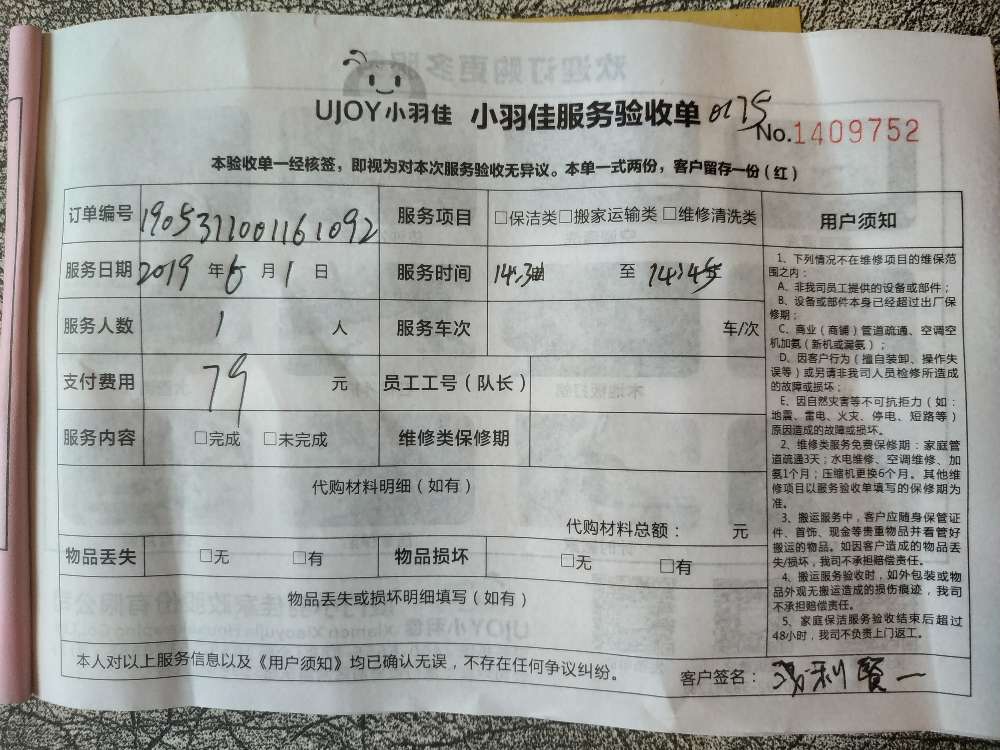 UJOY小羽佳 小羽佳服务验收单 0175
No.1409752
本验收单一经核签，即视为对本次服务验收无异议。本单一式两份，客户留存一份（红）
订单编号 1905311001161092 服务项目 □保洁类□搬家运输类□维修清洗类
服务日期 2019 年 6 月 1 日 服务时间 至 14:45
服务人数 1 人 服务车次 车/次
支付费用 79 元 员工工号（队长）
服务内容 □完成 □未完成 维修类保修期
代购材料明细（如有）
代购材料总额： 元
物品丢失 □无 □有 物品损坏 □无 □有
物品丢失或损坏明细填写（如有）
本人对以上服务信息以及《用户须知》均已确认无误，不存在任何争议纠纷。 客户签名：
用户须知
1、下列情况不在维修项目的维保范
围之内：
A、非我司员工提供的设备或部件；
B、设备或部件本身已经超过出厂保
修期；
C、商业（商铺）管道疏通、空调空
机加氨（新机或漏氨）；
D、因客户行为（擅自装卸、操作失
误等）或另请非我司人员检修所造成
的故障或损坏；
E、因自然灾害等不可抗拒力（如：
地震、雷电、火灾、停电、短路等）
原因造成的故障或损坏。
2、维修类服务免费保修期：家庭管
道疏通3天；水电维修、空调维修、加
氨1个月；压缩机更换6个月。其他维
修项目以服务验收单填写的保修期为
准。
3、搬运服务中，客户应随身保管证
件、首饰、现金等贵重物品并看管好
搬运的物品。如因客户造成的物品丢
失/损坏，我司不承担赔偿责任。
4、搬运服务验收时，如外包装或物
品外观无搬运造成的损伤痕迹，我司
不承担赔偿责任。
5、家庭保洁服务验收结束后超过
48小时，我司不负责上门返工。